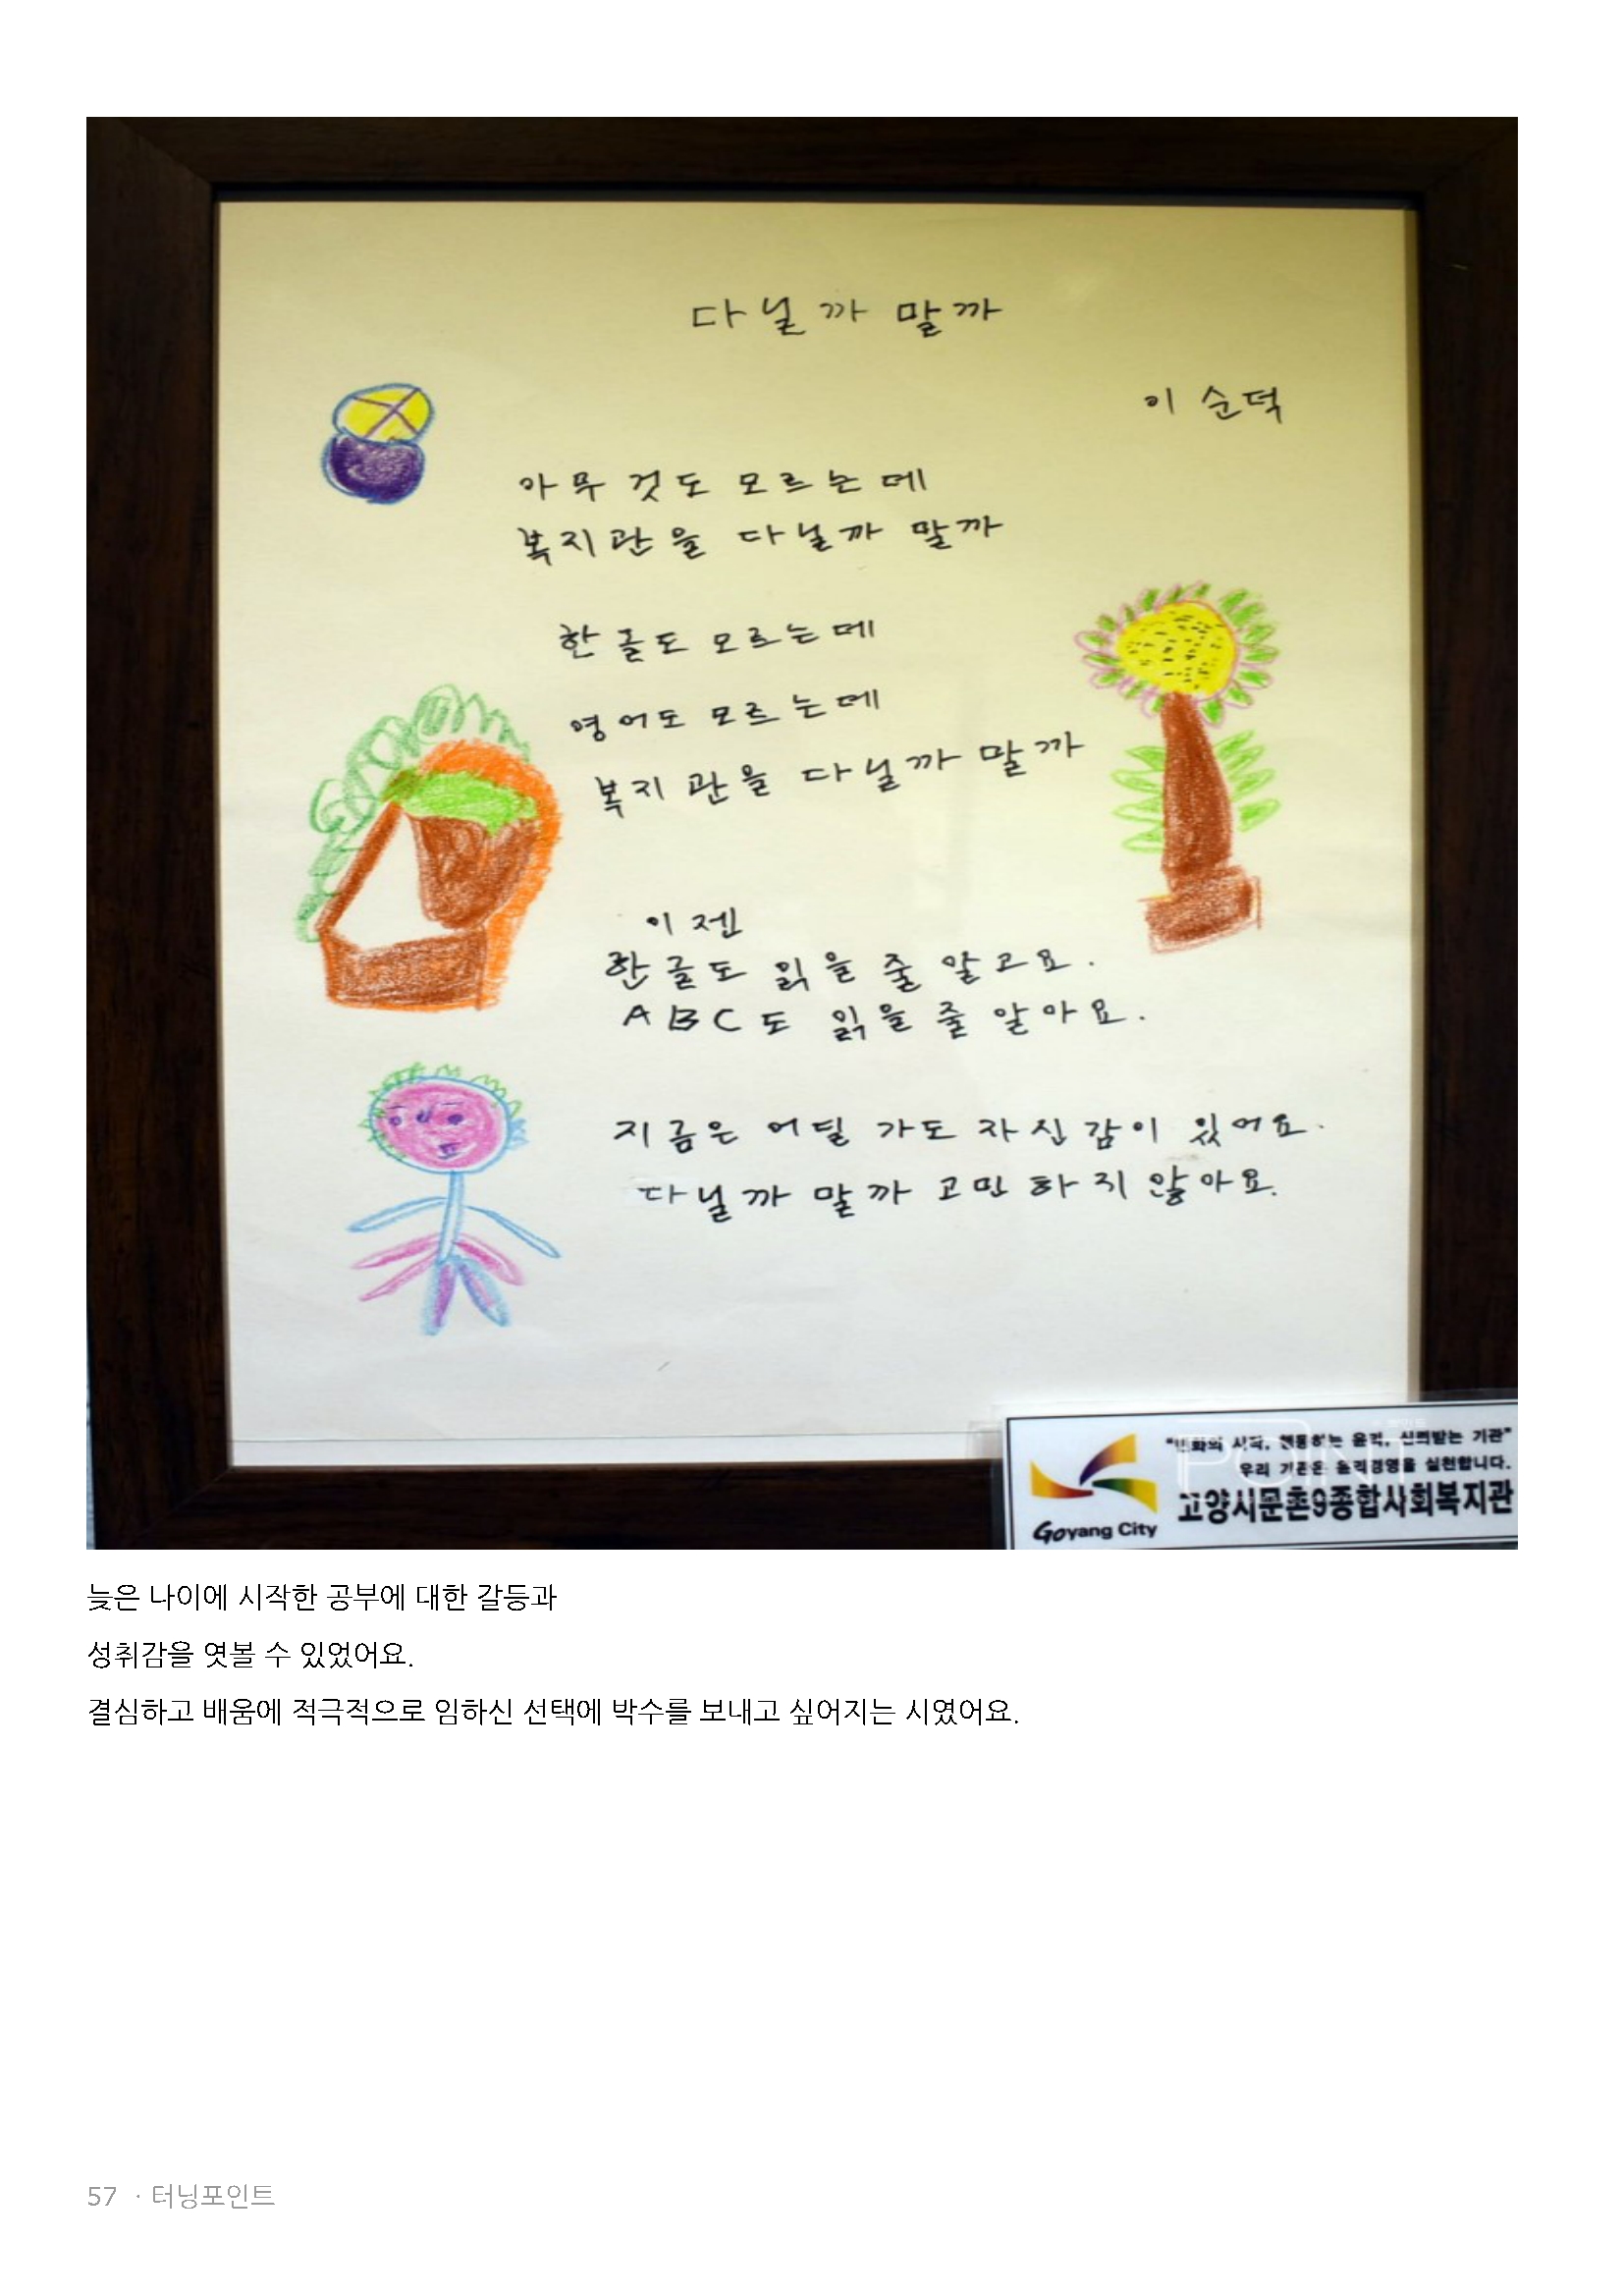 다닐까 말까
이 순덕
아무것도 모르는데
복지관을 다닐까 말까
한글도 모르는데
영어도 모르는데
복지관을 다닐까 말까
이젠
한글도 읽을 줄 알고요.
ABC도 읽을 줄 알아요.
지금은 어딜 가도 자신감이 있어요.
다닐까 말까 고민 하지 않아요.
"변화의 시작, 행동하는 윤리, 신뢰받는 기관"
우리 기관은 윤리경영을 실천합니다.
고양시문촌9종합사회복지관
Goyang City
늦은 나이에 시작한 공부에 대한 갈등과
성취감을 엿볼 수 있었어요.
결심하고 배움에 적극적으로 임하신 선택에 박수를 보내고 싶어지는 시였어요.
57 · 터닝포인트